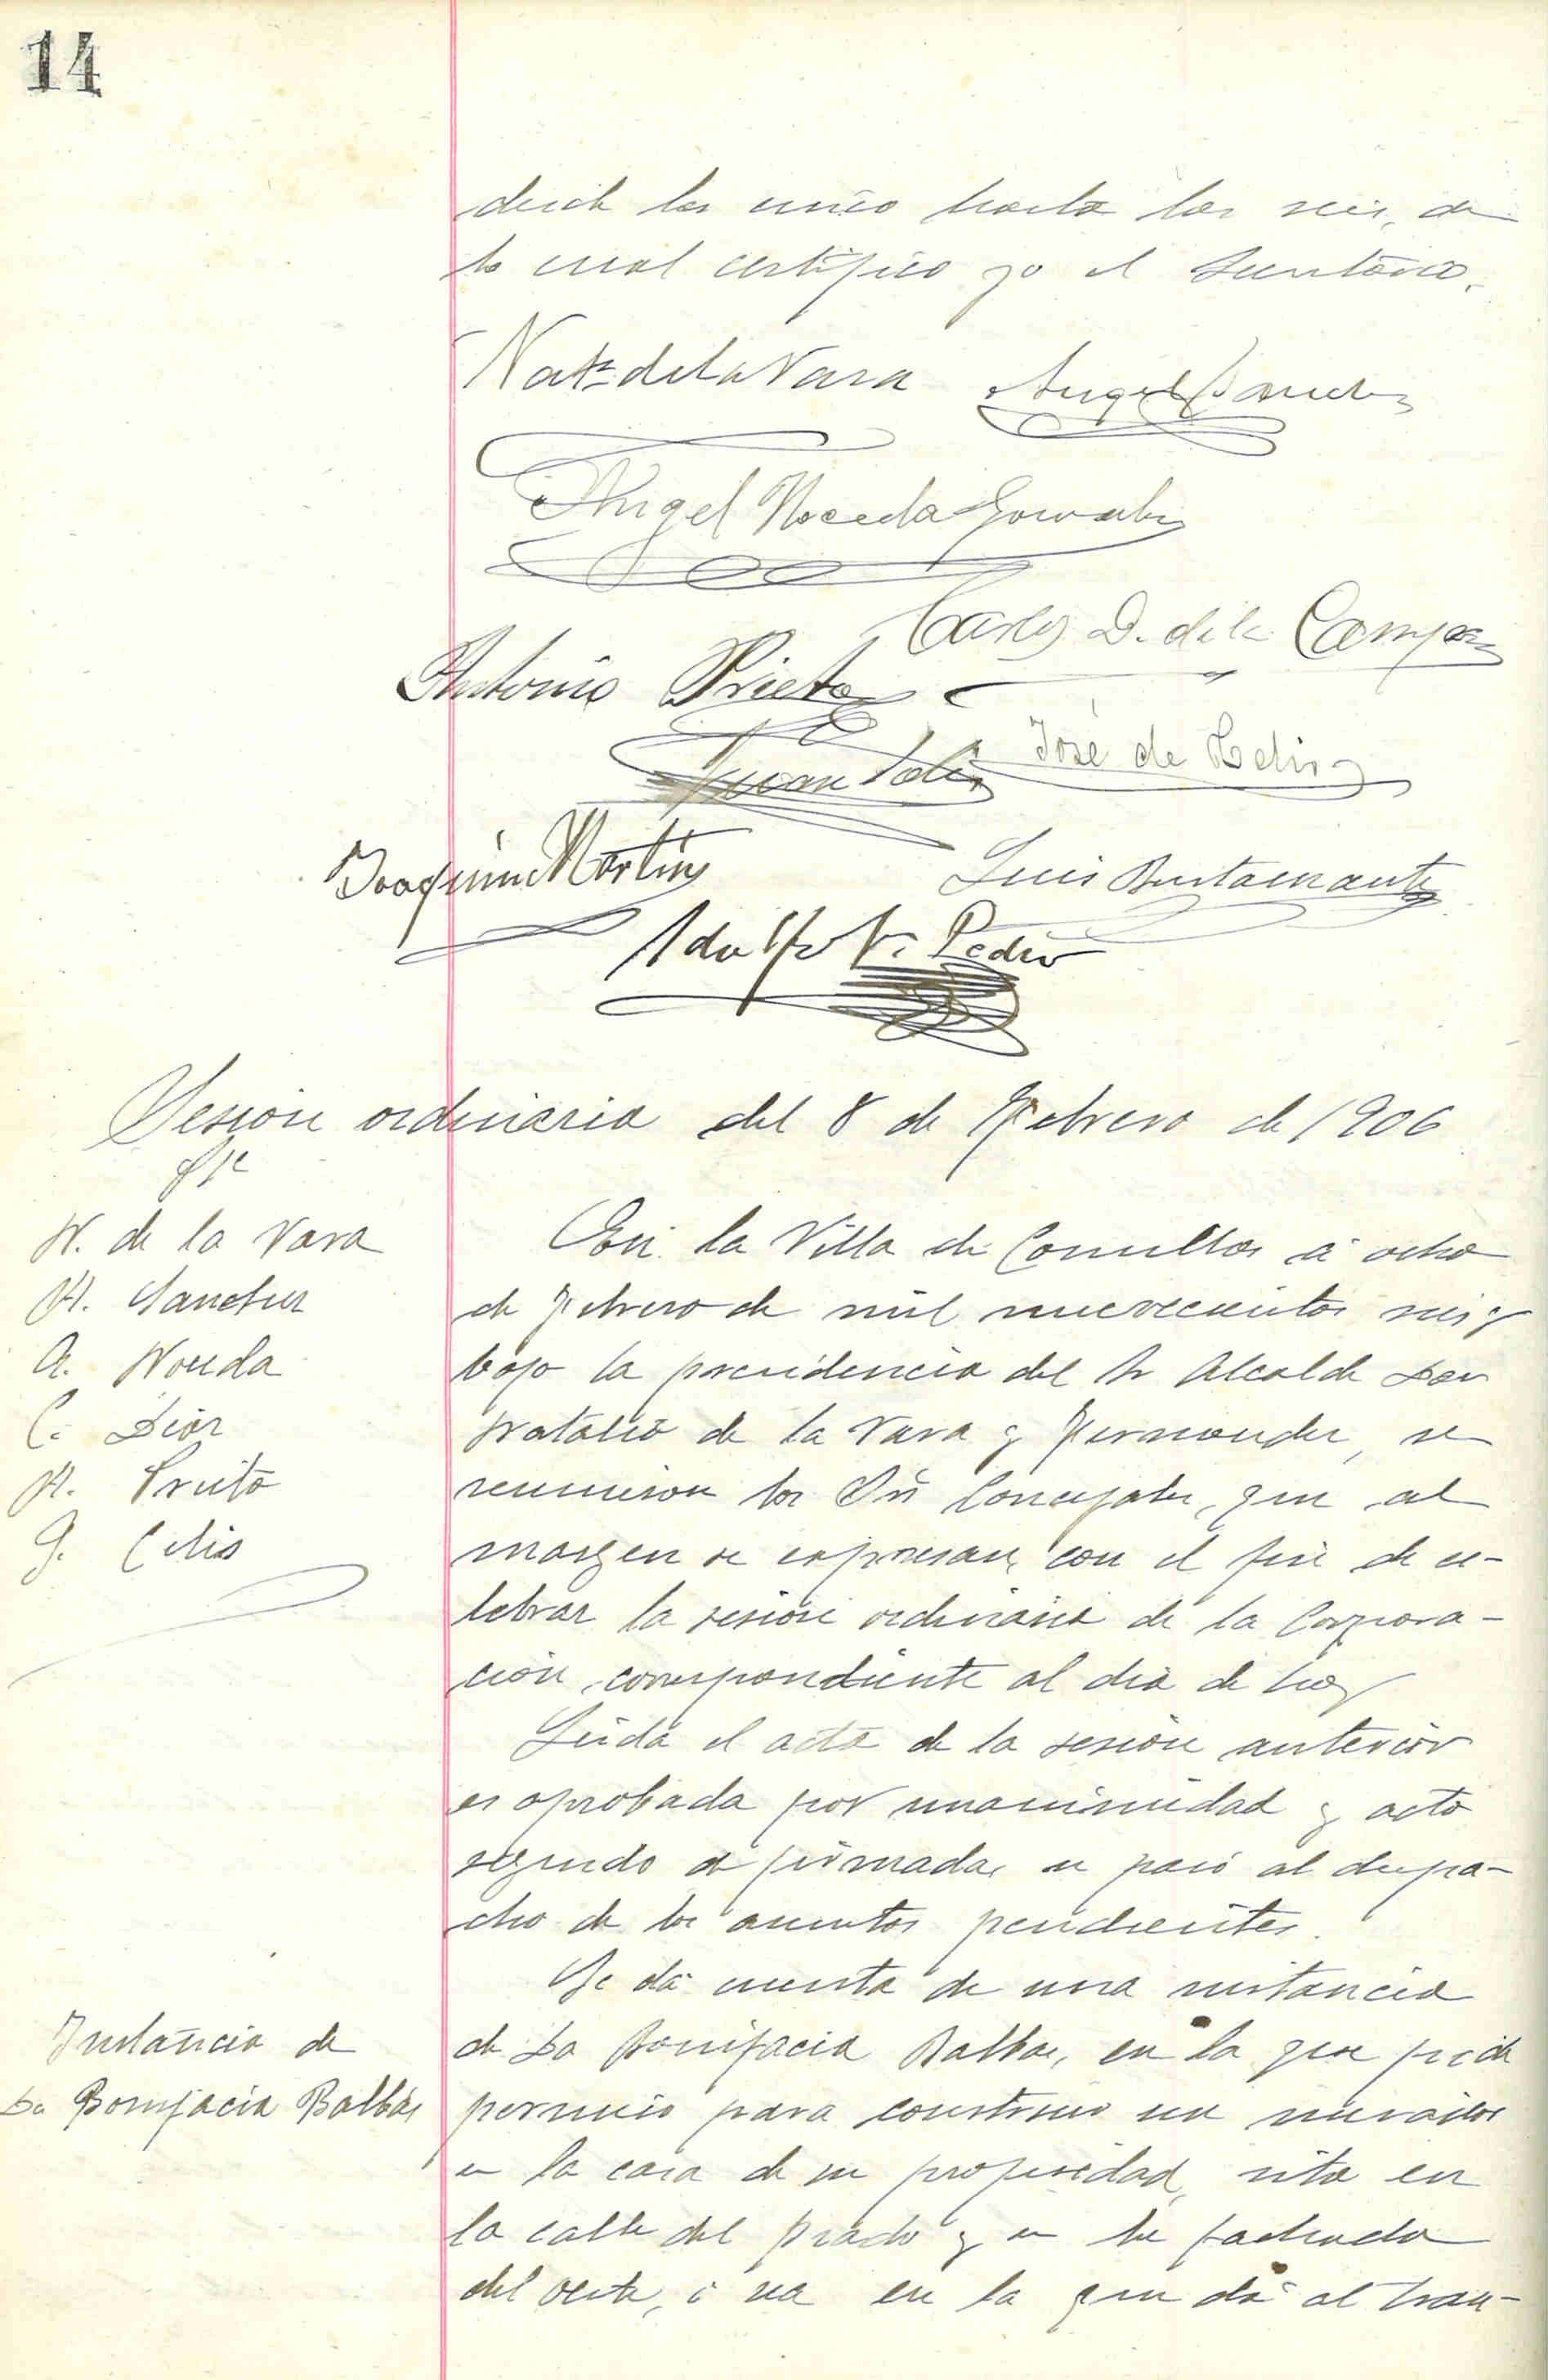 14
desde las cinco hasta las seis, de
lo cual certifico yo el Secretario.
Nat. de la Vara Angel Sanchez
Angel Noceda Gonzalez
Carlos D. de la Campa
Antonio Prieto
José de Celis
Juan Celis
Joaquin Martin
Luis Bustamante
Adolfo V. Pedro
Sesion ordinaria del 8 de Febrero de 1906
N. de la Vara
A. Sanchez
A. Noceda
C. Diaz
A. Prieto
J. Celis
En la Villa de Comillas á ocho
de Febrero de mil nuevecientos seis y
bajo la presidencia del Sr Alcalde Don
Natalio de la Vara y Fernandez, se
reunieron los Srs Concejales, que al
margen se expresan, con el fin de ce-
lebrar la sesion ordinaria de la Corpora-
ción, correspondiente al dia de hoy
Leida el acta de la sesion anterior
es aprobada por unanimidad y acto
seguido de firmada, se pasó al despa-
cho de los asuntos pendientes.
Instancia de
Da Bonifacia Balbás
Se dá cuenta de una instancia
de Da Bonifacia Balbas, en la que pide
permiso para construir un mirador
en la casa de su propiedad, sita en
la calle del Prado y en la fachada
del Oeste, ó sea en la que dá al tran-